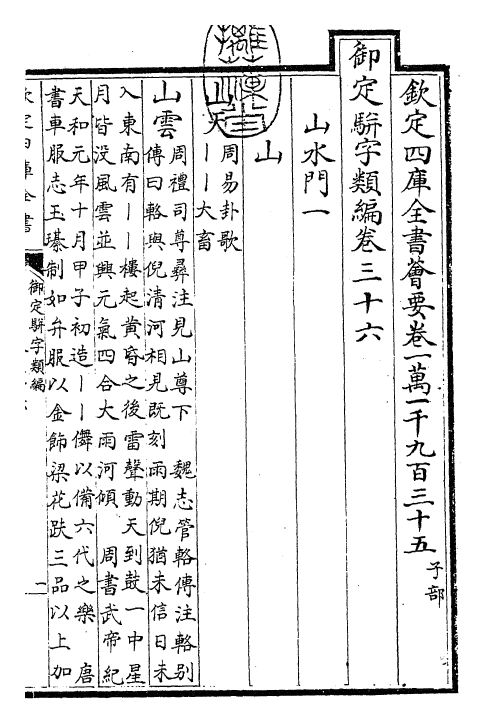 欽定四庫全書薈要卷一萬一千九百三十五 子部
御定駢字類編卷三十六
山水門一
山
山天 周易卦歌
丨丨大畜
山雲 周禮司尊彞注見山尊下 魏志管輅傳注輅别
傳曰輅與倪清河相見既刻雨期倪猶未信日未
入東南有丨丨樓起黄昏之後雷聲動天到鼓一中星
月皆没風雲並興元氣四合大雨河傾 周書武帝紀
天和元年十月甲子初造丨丨儛以備六代之樂 唐
書車服志玉璂制如弁服以金飾梁花趺三品以上加
欽定四庫全書
御定駢字類編
一